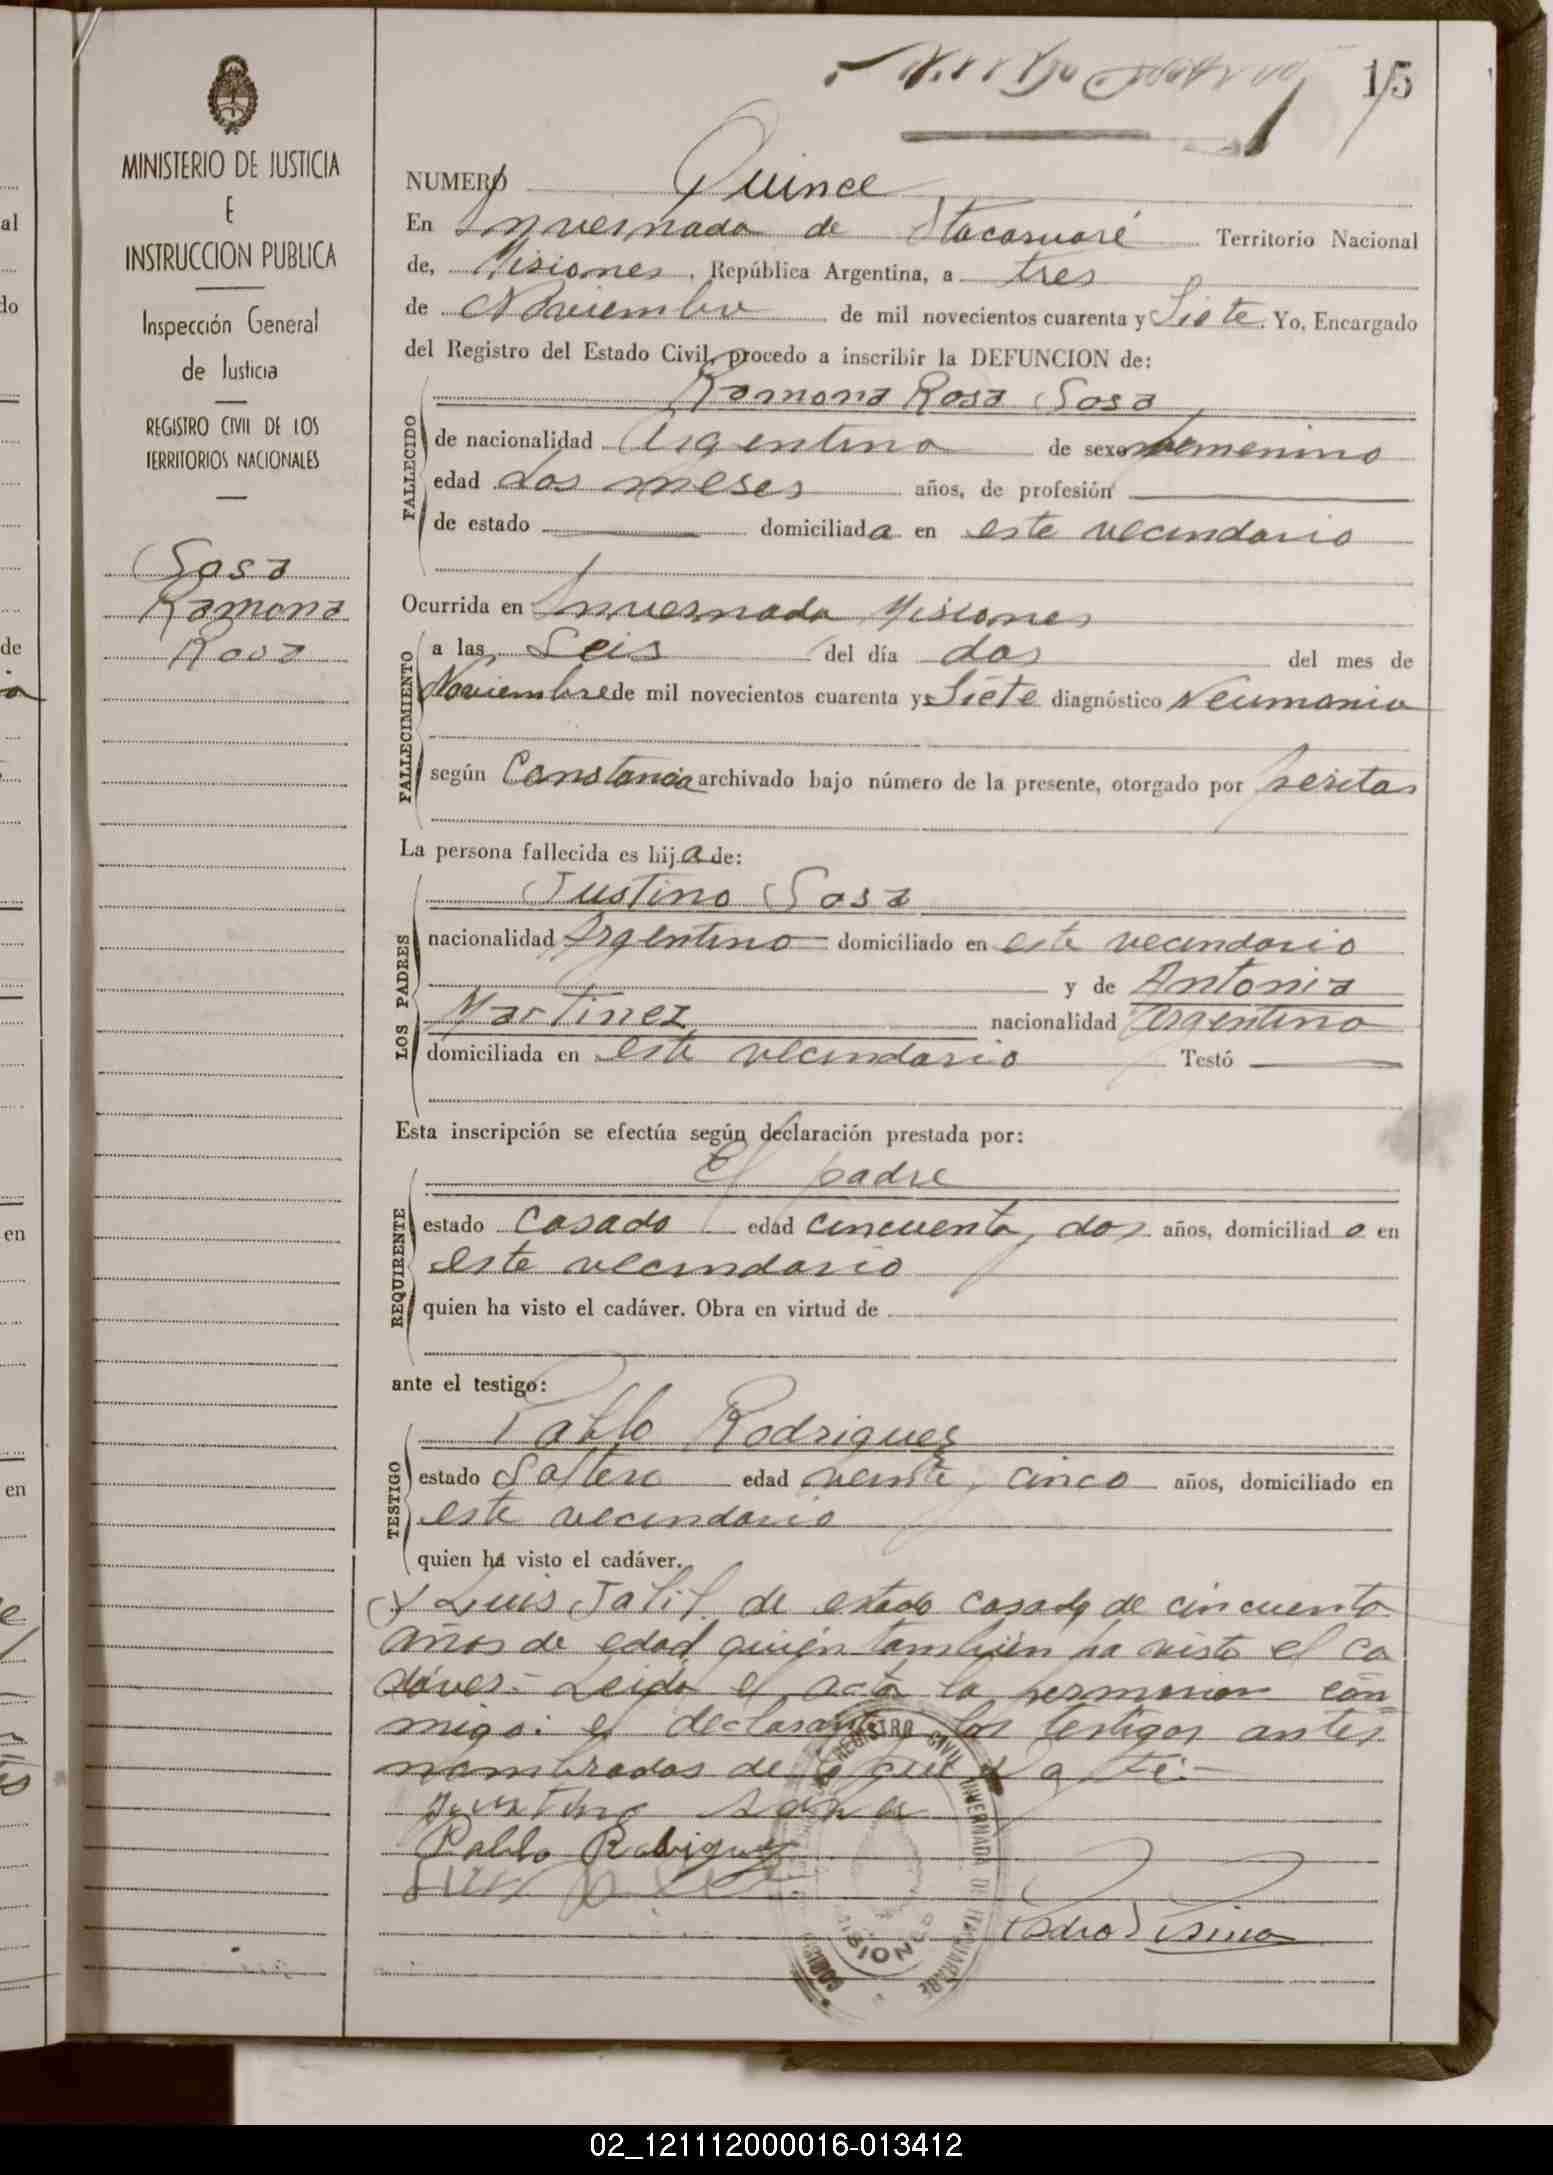 15
MINISTERIO DE JUSTICIA
E
INSTRUCCION PUBLICA
Inspección General
de Justicia
REGISTRO CIVIL DE LOS
TERRITORIOS NACIONALES
Sosa
Ramona
Rosa
NUMERO Quince
En Invernada de Itacaruaré Territorio Nacional
de, Misiones, República Argentina, a tres
de Noviembre de mil novecientos cuarenta y Siete. Yo, Encargado
del Registro del Estado Civil, procedo a inscribir la DEFUNCION de:
Ramona Rosa Sosa
FALLECIDO
de nacionalidad Argentina de sexo femenino
edad dos meses años, de profesión
de estado domiciliada en este vecindario
Ocurrida en Invernada Misiones
FALLECIMIENTO
a las Seis del día dos del mes de
Noviembre de mil novecientos cuarenta y Siete diagnóstico Neumonia
según Constancia archivado bajo número de la presente, otorgado por peritos
La persona fallecida es hija de:
LOS PADRES
Justino Sosa
nacionalidad Argentino domiciliado en este vecindario
y de Antonia
Martinez nacionalidad Argentina
domiciliada en este vecindario Testó
Esta inscripción se efectúa según declaración prestada por:
El padre
REQUIRENTE
estado Casado edad cincuenta y dos años, domiciliado en
este vecindario
quien ha visto el cadáver. Obra en virtud de
ante el testigo:
Pablo Rodriguez
TESTIGO
estado Soltero edad veinte y cinco años, domiciliado en
este vecindario
quien ha visto el cadáver.
y Luis Jalil de estado casado de cincuenta
años de edad quién tambien ha visto el ca
dáver.- Leida el acta la firmaron con
migo: el declarante y los testigos antes
nombrados de lo que doy fé.-
Justino Sosa
Pablo Rodriguez
Luis
REGISTRO CIVIL INVERNADA DE ITACARUARE
MISIONES
02_121112000016-013412